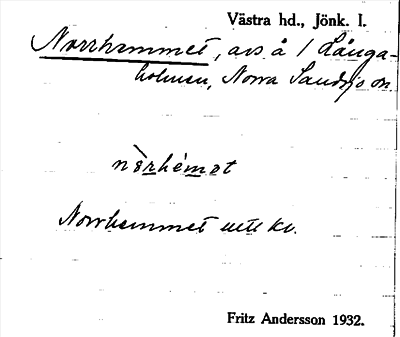 Västra hd., Jönk. l.
Norrhemmet, avs å 1 Långa-
holmen, Norra Sandsjö sn.
Norrhemmet uttl kv.
Fritz Andersson 1932.